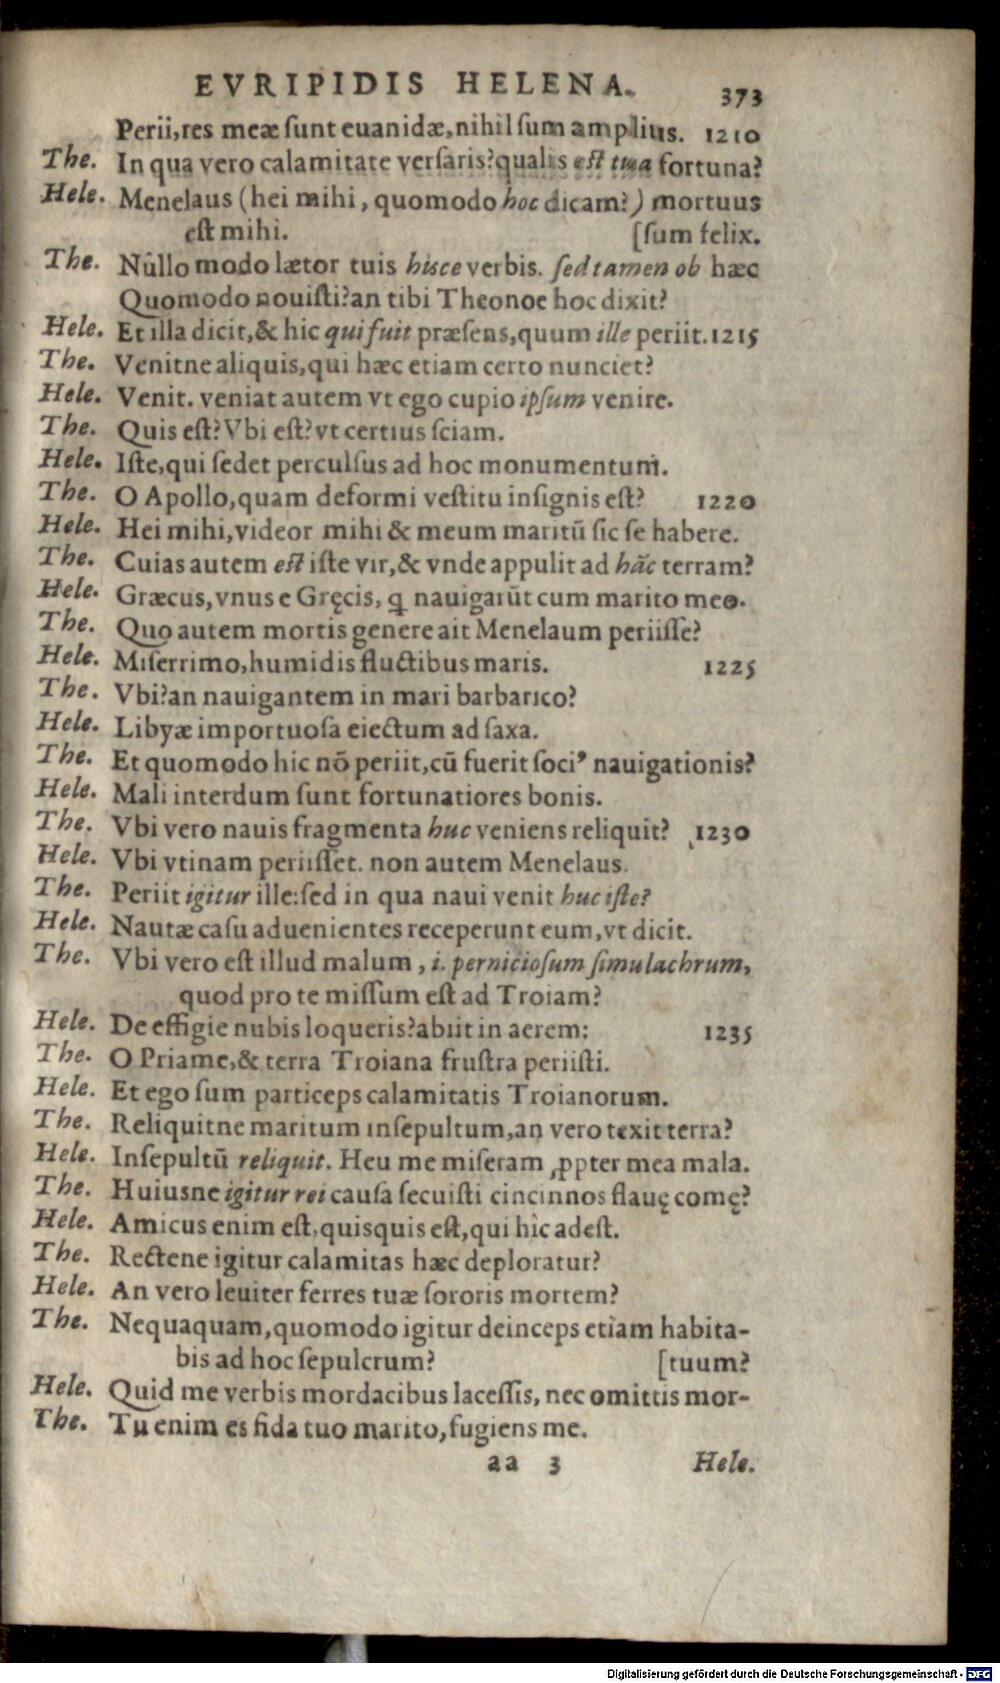 EVRIPIDIS HELENA. 373
Perii,res meæ ſunt euanidæ,nihil ſum amplius. 1210
The. In qua vero calamitate verſaris?qualis est tua fortuna?
Hele. Menelaus (hei mihi, quomodo hoc dicam?) mortuus
eſt mihi. [ſum felix.
The. Nullo modo lætor tuis hisce verbis. ſed tamen ob hæc
Quomodo nouiſti?an tibi Theonoe hoc dixit?
Hele. Et illa dicit,& hic qui fuit præſens,quum ille periit. 1215
The. Venitne aliquis,qui hæc etiam certo nunciet?
Hele. Venit. veniat autem vt ego cupio ipſum venire.
The. Quis eſt?Vbi eſt?vt certius ſciam.
Hele. Iſte,qui ſedet perculſus ad hoc monumentum.
The. O Apollo,quam deformi veſtitu inſignis eſt? 1220
Hele. Hei mihi,videor mihi & meum maritū ſic ſe habere.
The. Cuias autem est iſte vir,& vnde appulit ad hãc terram?
Hele. Græcus,vnus e Gręcis, ꝗ nauigarūt cum marito meo.
The. Quo autem mortis genere ait Menelaum periiſſe?
Hele. Miſerrimo,humidis fluctibus maris. 1225
The. Vbi?an nauigantem in mari barbarico?
Hele. Libyæ importuoſa eiectum ad ſaxa.
The. Et quomodo hic nō periit,cū fuerit ſociꝰ nauigationis?
Hele. Mali interdum ſunt fortunatiores bonis.
The. Vbi vero nauis fragmenta huc veniens reliquit? 1230
Hele. Vbi vtinam periiſſet. non autem Menelaus.
The. Periit igitur ille:ſed in qua naui venit huc iſte?
Hele. Nautæ caſu aduenientes receperunt eum,vt dicit.
The. Vbi vero eſt illud malum, i. pernicioſum ſimulachrum,
quod pro te miſſum eſt ad Troiam?
Hele. De effigie nubis loqueris?abiit in aerem: 1235
The. O Priame,& terra Troiana fruſtra periiſti.
Hele. Et ego ſum particeps calamitatis Troianorum.
The. Reliquitne maritum inſepultum,an vero texit terra?
Hele. Inſepultū reliquit. Heu me miſeram ꝓpter mea mala.
The. Huiusne igitur rei cauſa ſecuiſti cincinnos flauę comę?
Hele. Amicus enim eſt,quisquis eſt,qui hìc adeſt.
The. Rectene igitur calamitas hæc deploratur?
Hele. An vero leuiter ferres tuæ ſororis mortem?
The. Nequaquam,quomodo igitur deinceps etiam habita-
bis ad hoc ſepulcrum? [tuum?
Hele. Quid me verbis mordacibus laceſſis, nec omittis mor-
The. Tu enim es fida tuo marito,fugiens me.
aa 3 Hele.
Digitalisierung gefördert durch die Deutsche Forschungsgemeinschaft - DFG